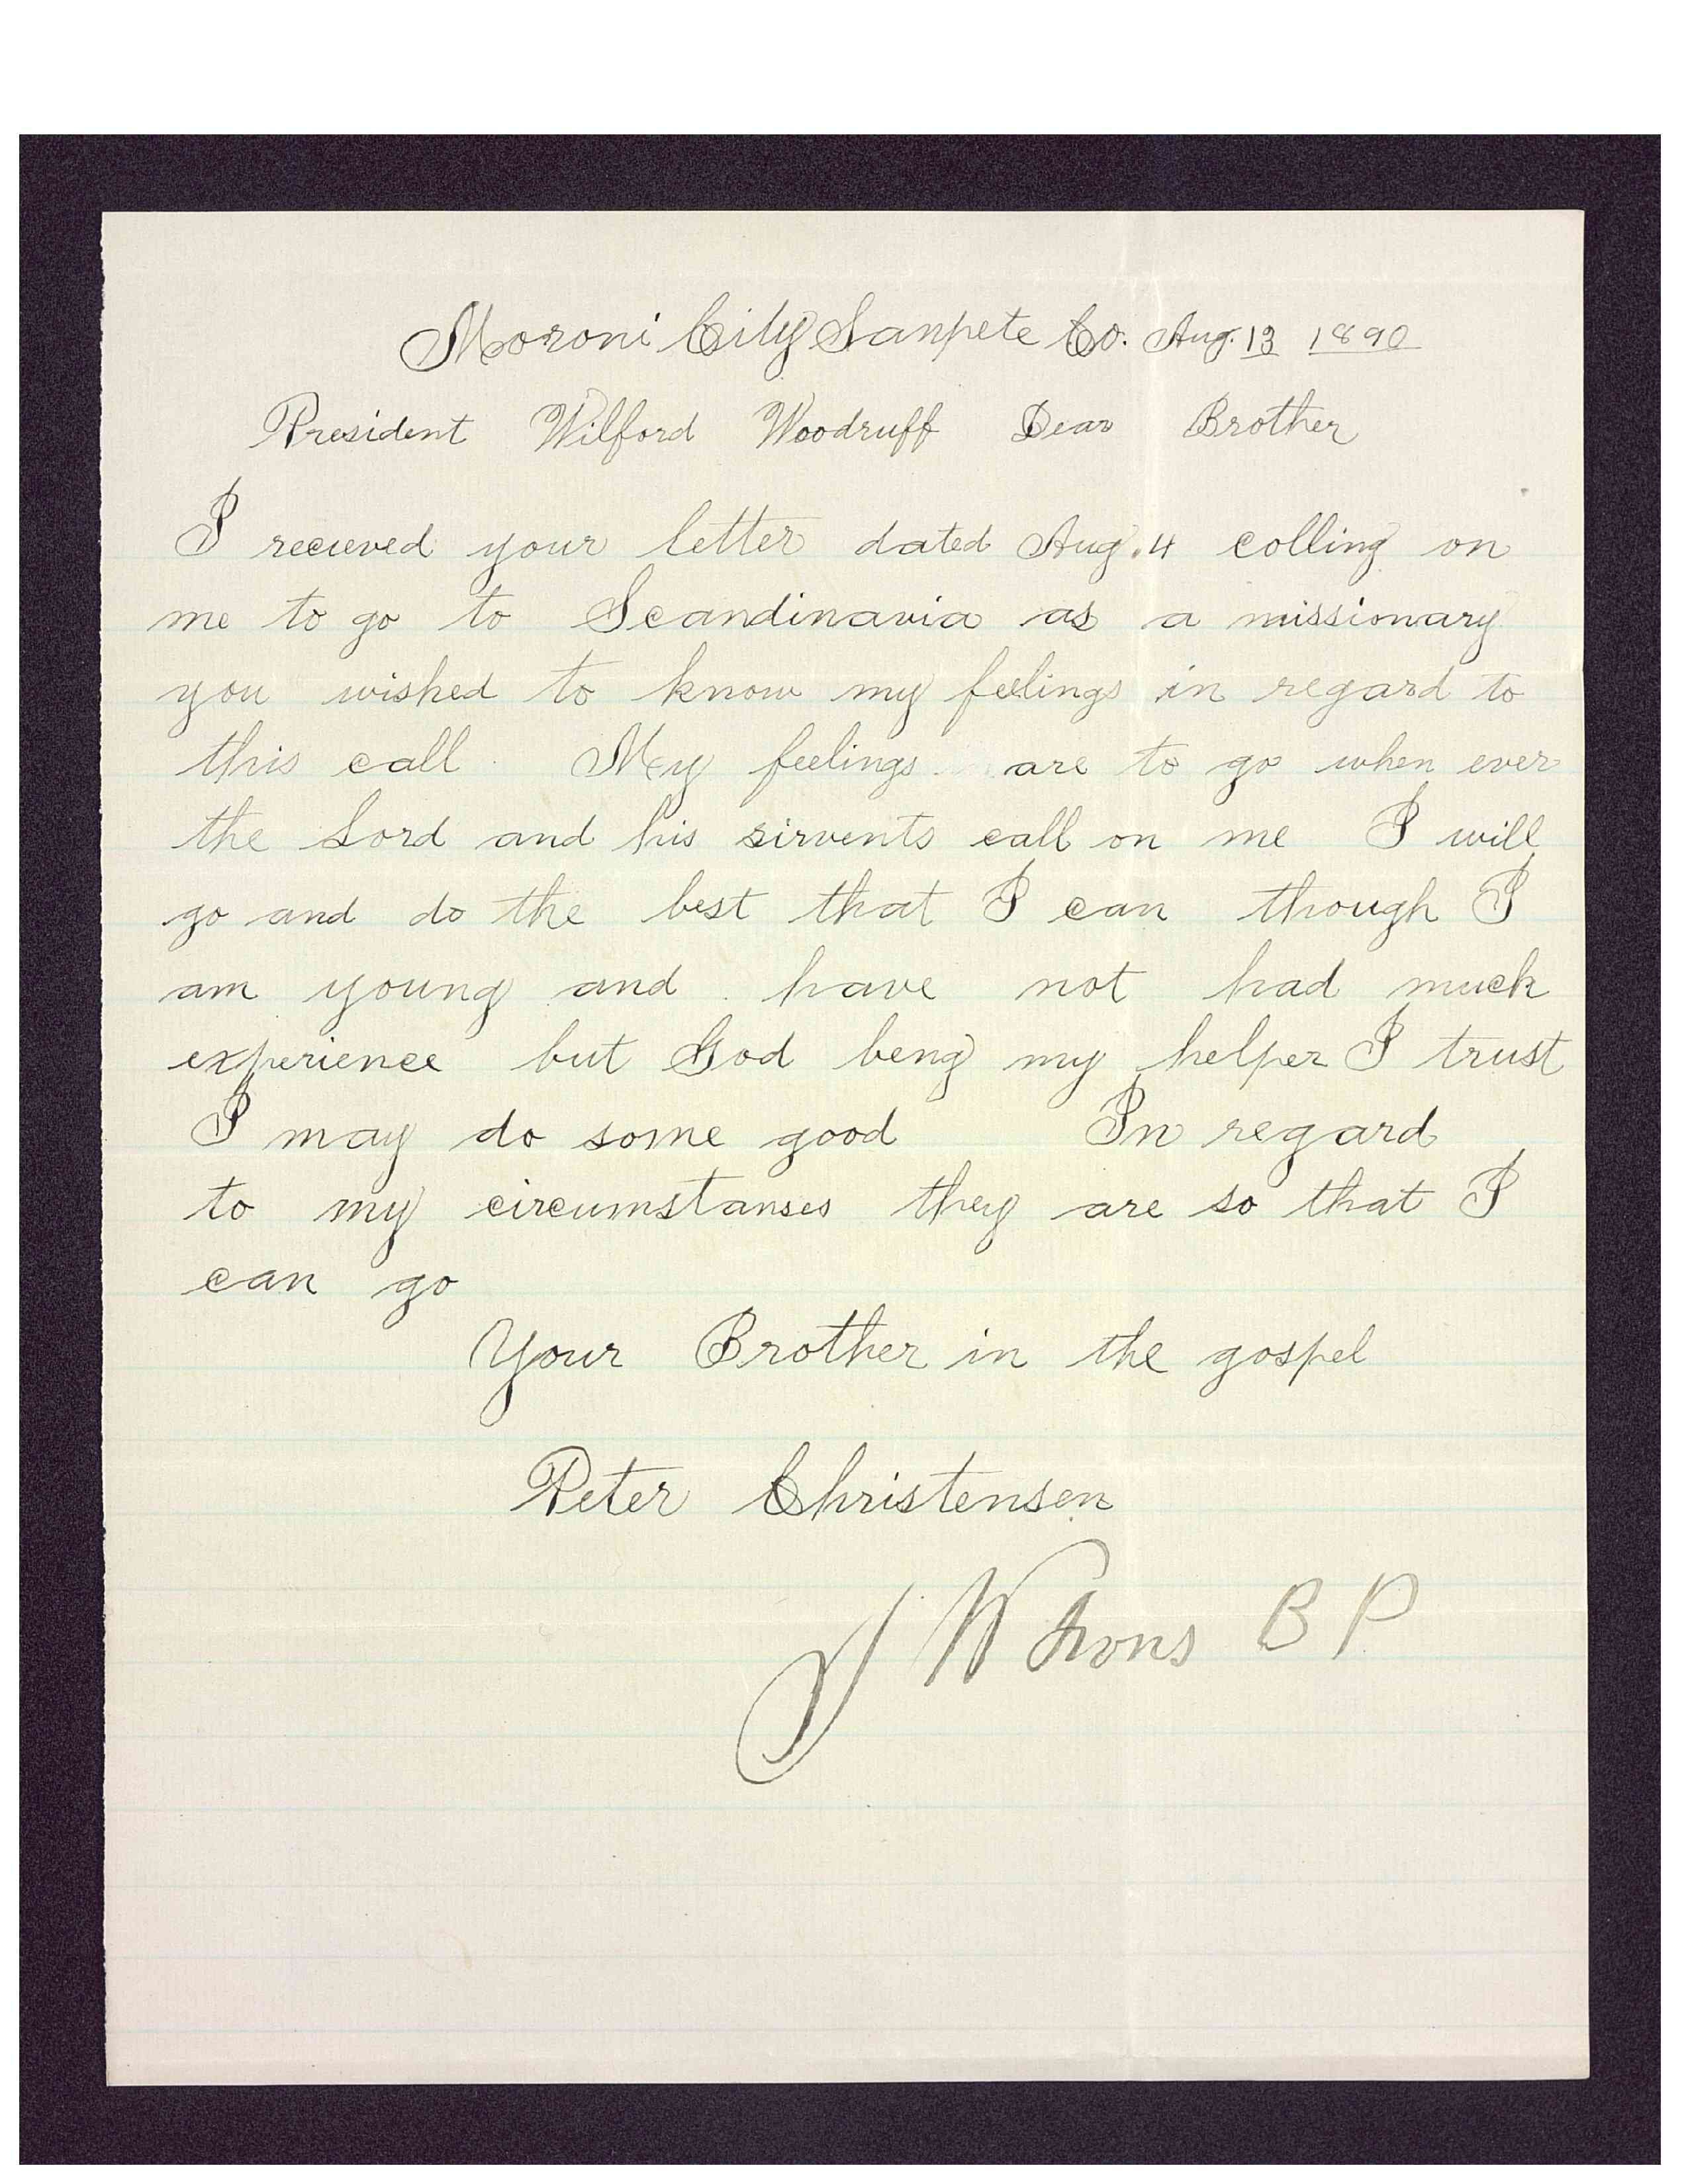 Moroni City Sanpete Co. Aug. 13 1890
President Wilford Woodruff Dear Brother
I recieved your letter dated Aug. 4 colling on
me to go to Scandinavia as a missionary
you wished to know my feelings in regard to
this call. My feelings are to go when ever
the Lord and his sirvents call on me I will
go and do the best that I can though I
am young and have not had much
experience but God beng my helper I trust
I may do some good In regard
to my circumstanses they are so that I
can go
Your Brother in the gospel
Peter Christensen
J W Irons B P